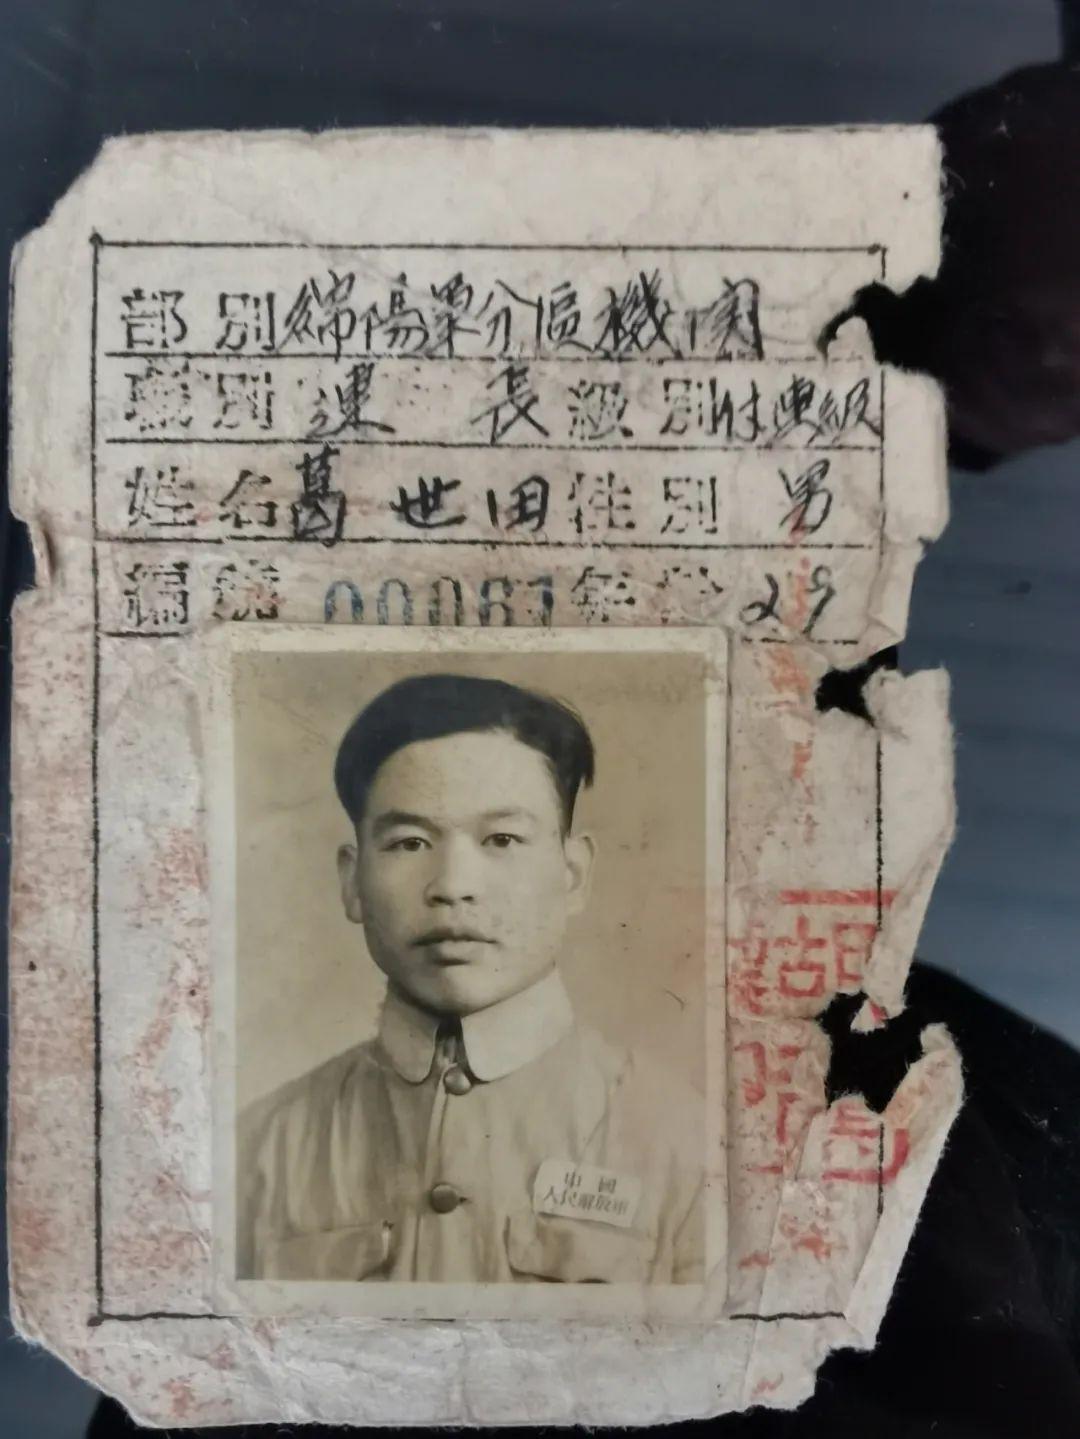 部別 綿陽軍分區機関
職別 連 長 級別 付連級
姓名 葛世田 性別 男
編號 00081 年齡 29
中國
人民解放軍